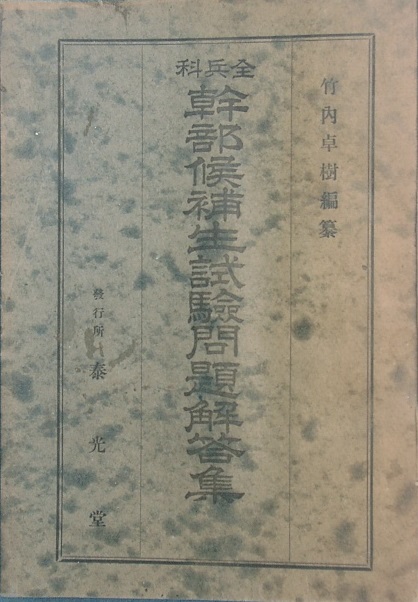 竹內卓樹編纂
全兵科
幹部候補生試驗問題解答集
發行所 泰光堂